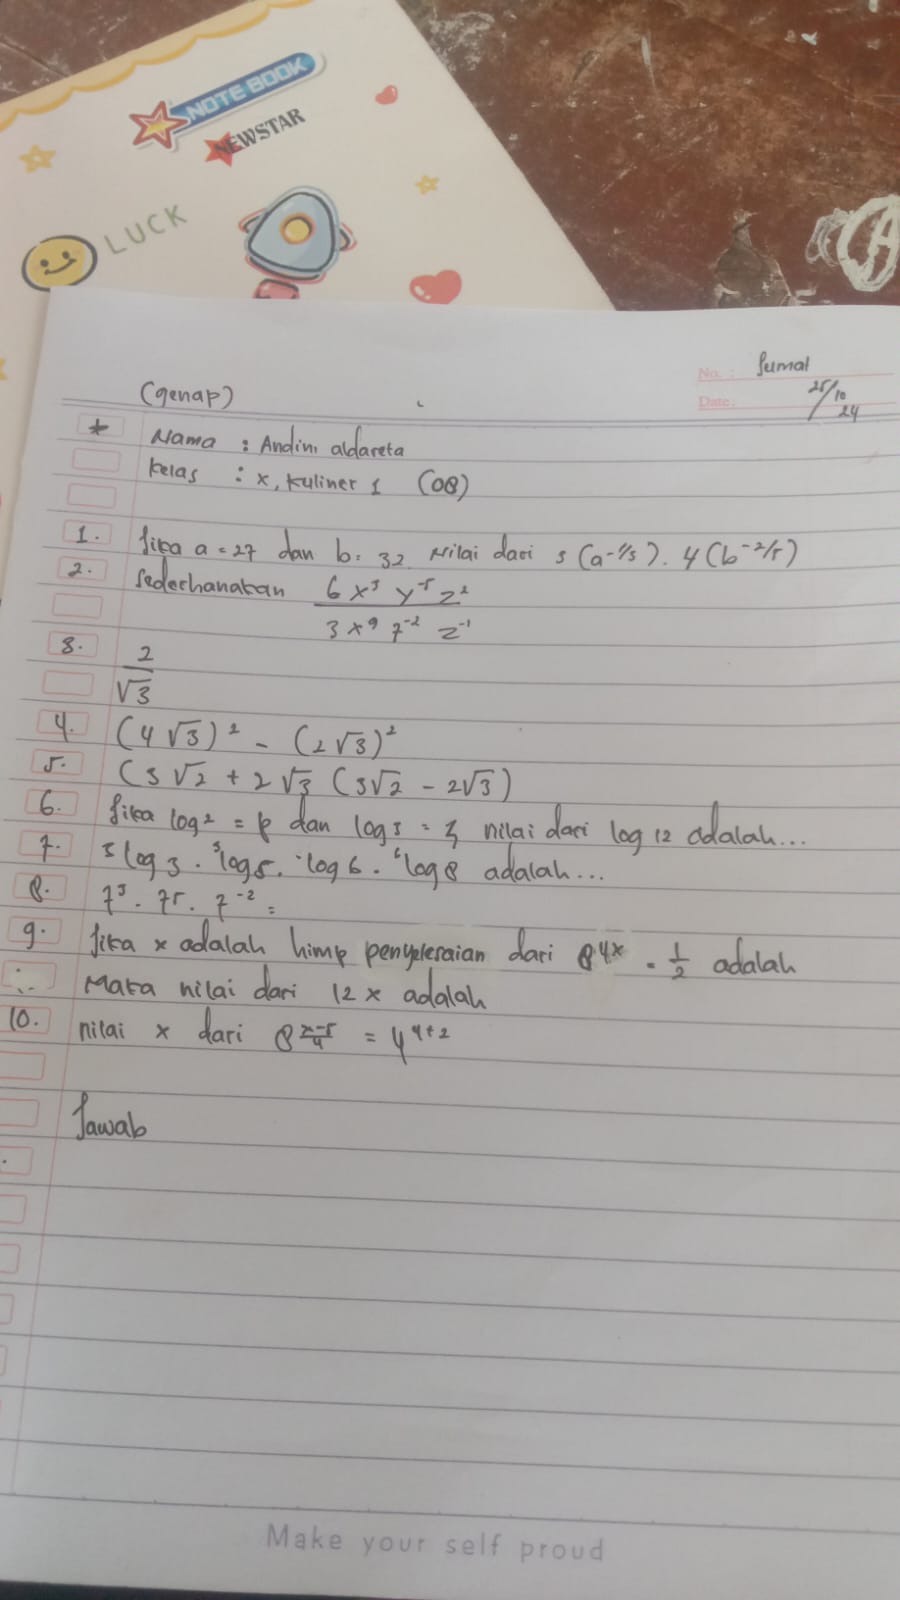 NOTE BOOK
NEWSTAR
LUCK
No. : Jumat
Date: 25/10 24
(genap)
Nama : Andini aldareta
Kelas : X, Kuliner 1 (08)
1. Jika a = 27 dan b = 32 Nilai dari 3 (a⁻¹/³). 4 (b⁻²/⁵)
2. Sederhanakan 6 x³ y⁻⁵ z²
3 x⁹ 7⁻² z⁻¹
3. 2
√3
4. (4√3)² - (2√3)²
5. (3√2 + 2√3 (3√2 - 2√3)
6. Jika log² = p dan log 3 = nilai dari log 12 adalah...
7. 3 log 3 . ³log 5. log 6 . ⁶log 8 adalah...
8. 7³. 7⁵. 7⁻² =
9. Jika x adalah himp penyelesaian dari 8⁴ˣ = 1/2 adalah
Maka nilai dari 12 x adalah
10. nilai x dari 8 x-5/4 = 4 ⁺²
Jawab
Make your self proud